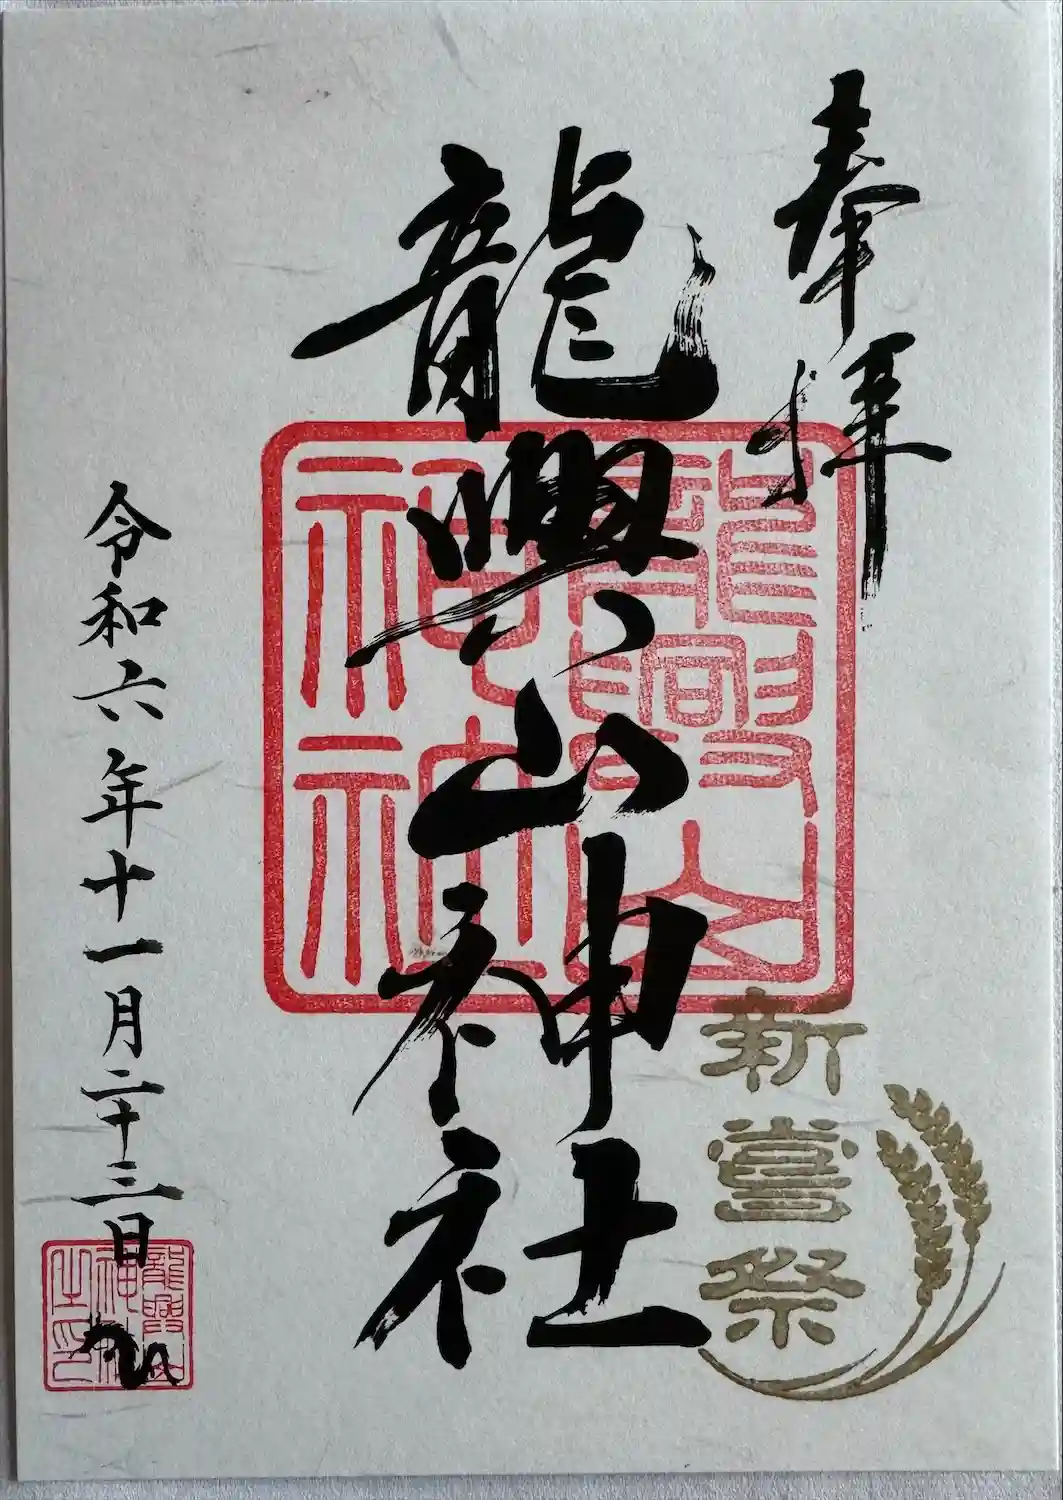 奉拝
龍興山神社
新嘗祭
令和六年十一月二十三日
龍興山
神社